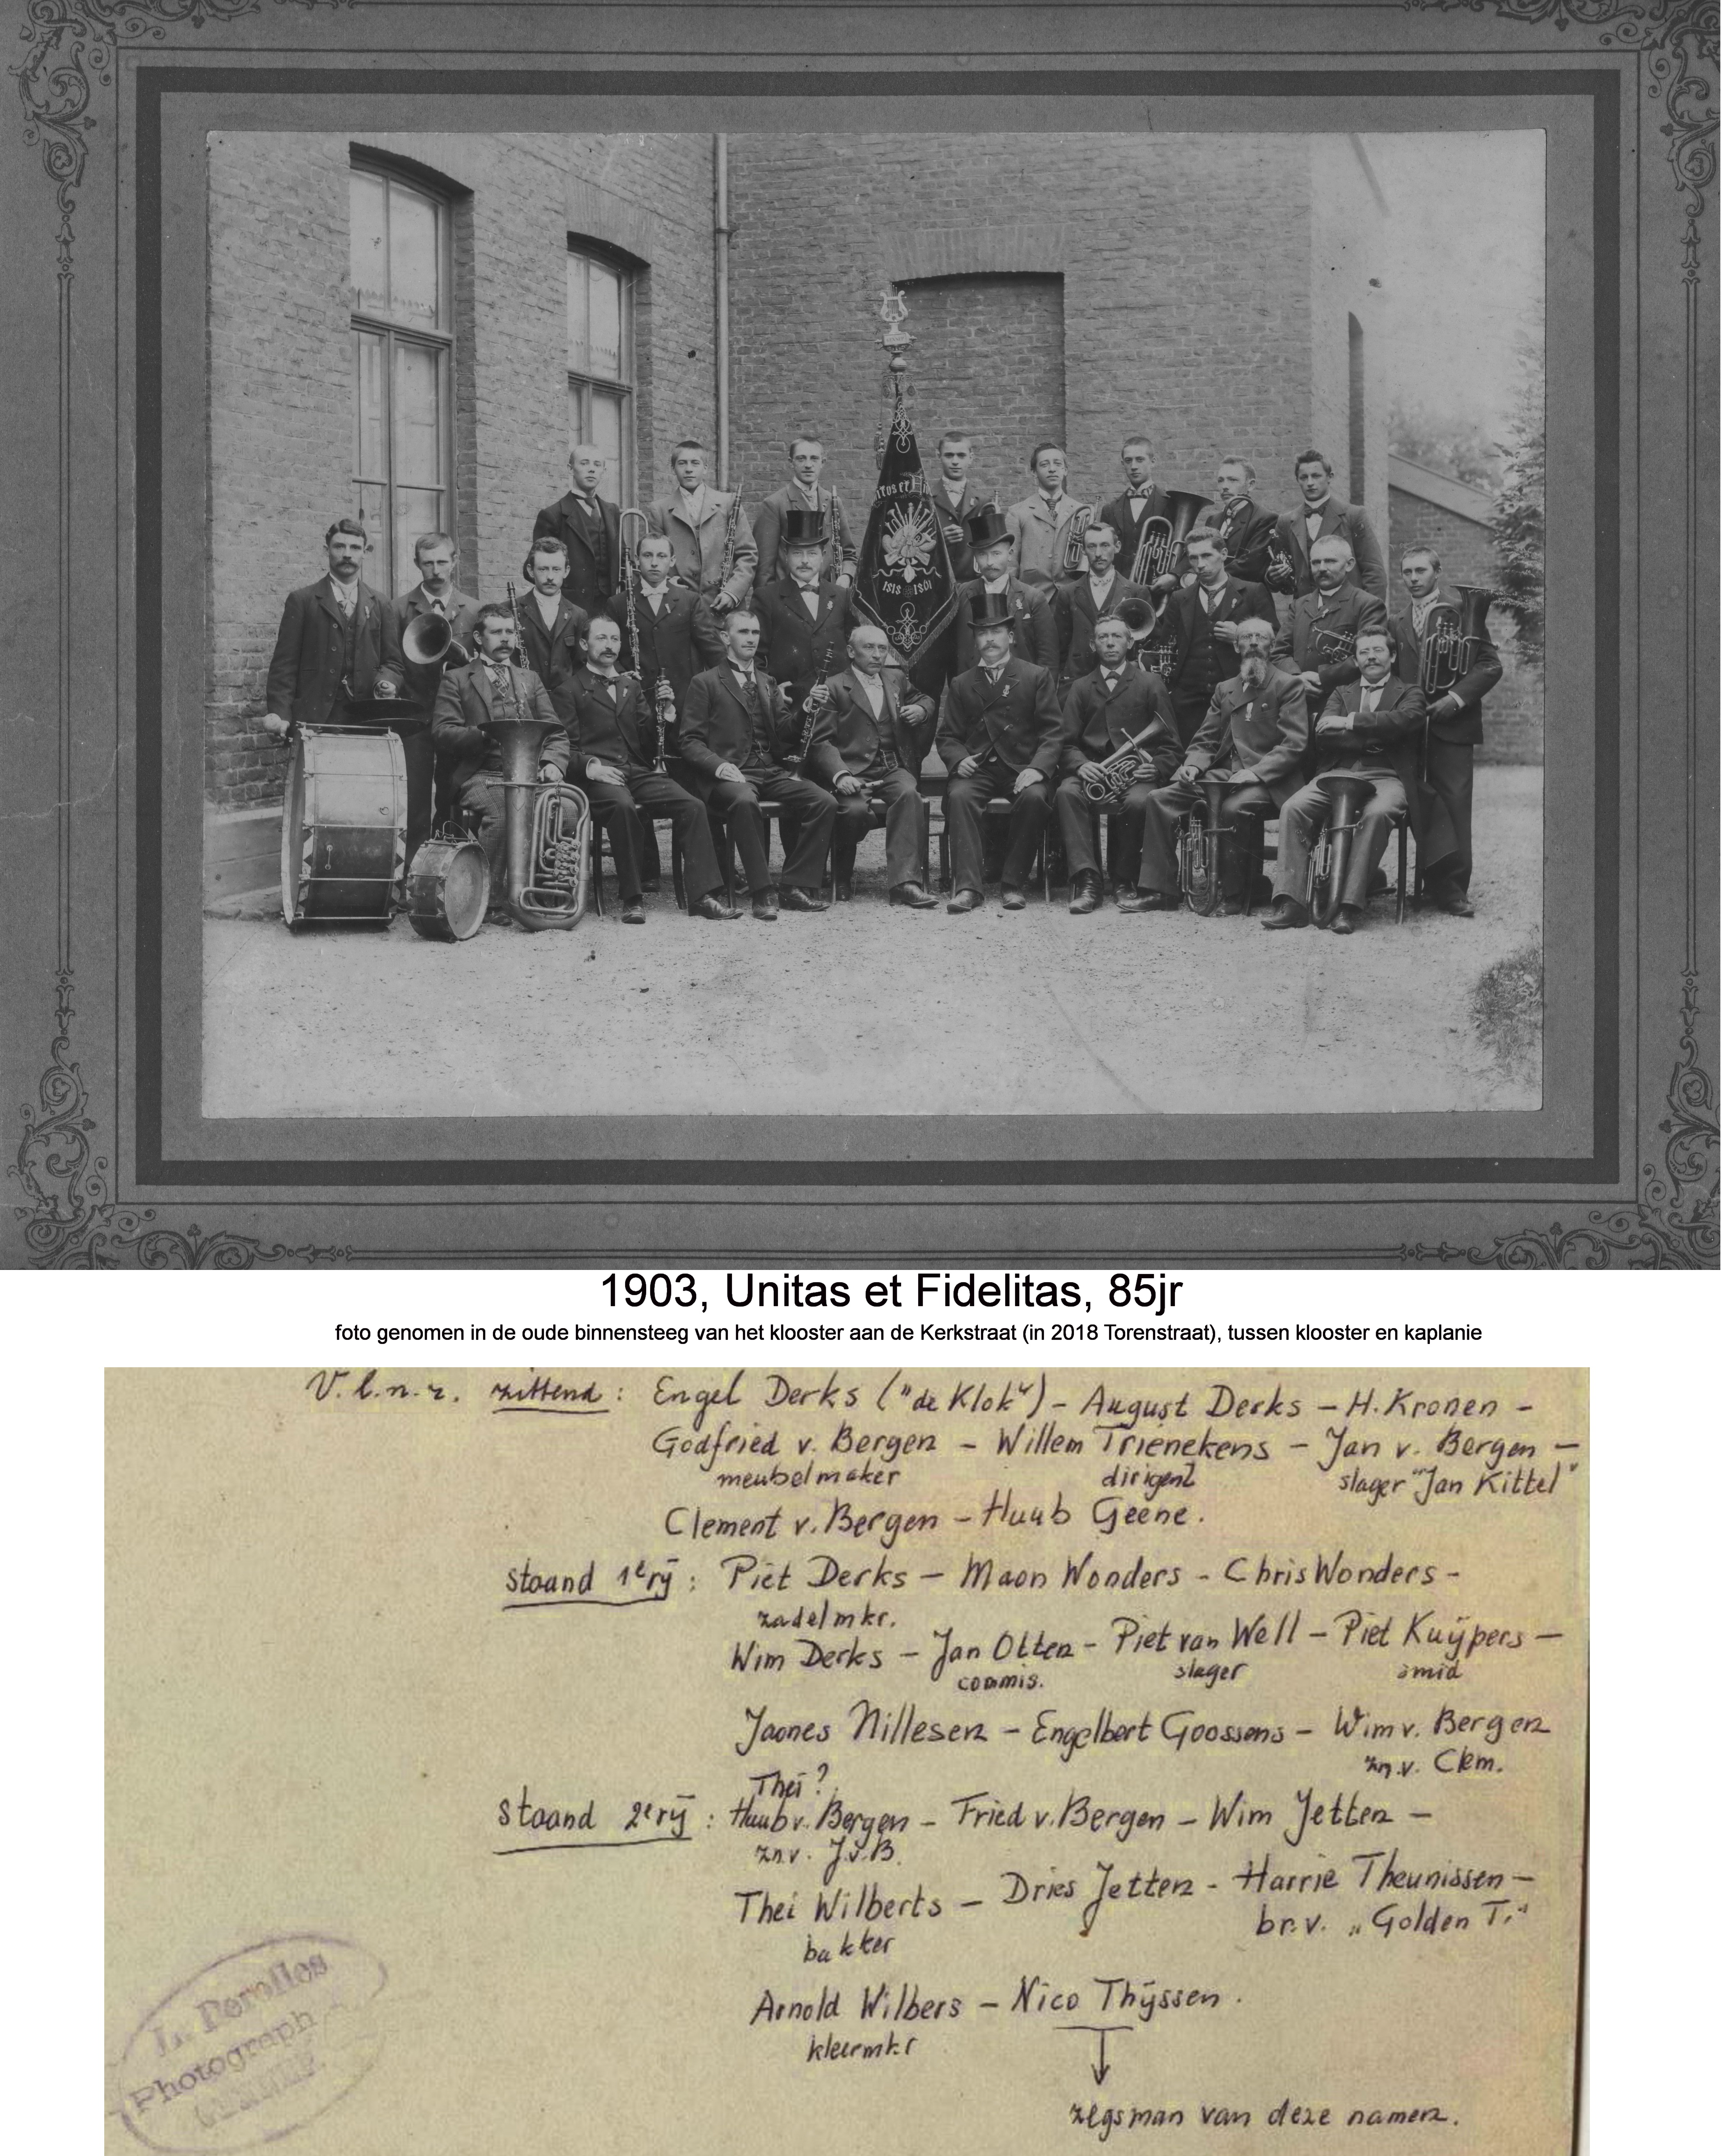 1818 1801
1903, Unitas et Fidelitas, 85jr
foto genomen in de oude binnensteeg van het klooster aan de Kerkstraat (in 2018 Torenstraat), tussen klooster en kaplanie
V.l.n.r. zittend: Engel Derks ("de Klok") – August Derks – H. Kronen –
Godfried v. Bergen – Willem Trienekens – Jan v. Bergen –
meubelmaker dirigent slager "Jan Kittel"
Clement v. Bergen – Huub Geene.
staand 1e rij: Piet Derks – Maon Wonders - Chris Wonders -
zadelmkr.
Wim Derks – Jan Otten – Piet van Well – Piet Kuÿpers –
commis. slager smid
Jaones Nillesen – Engelbert Goossens – Wim v. Bergen
zn.v. Clem.
Theï?
staand 2e rij: Huub v. Bergen – Fried v. Bergen – Wim Jetten –
zn.v. J.v.B.
Thei Wilberts – Dries Jetten - Harrie Theunissen –
bakker br.v. „Golden T."
Arnold Wilbers – Nico Thÿssen.
kleermkr
zegsman van deze namen.
Photograph